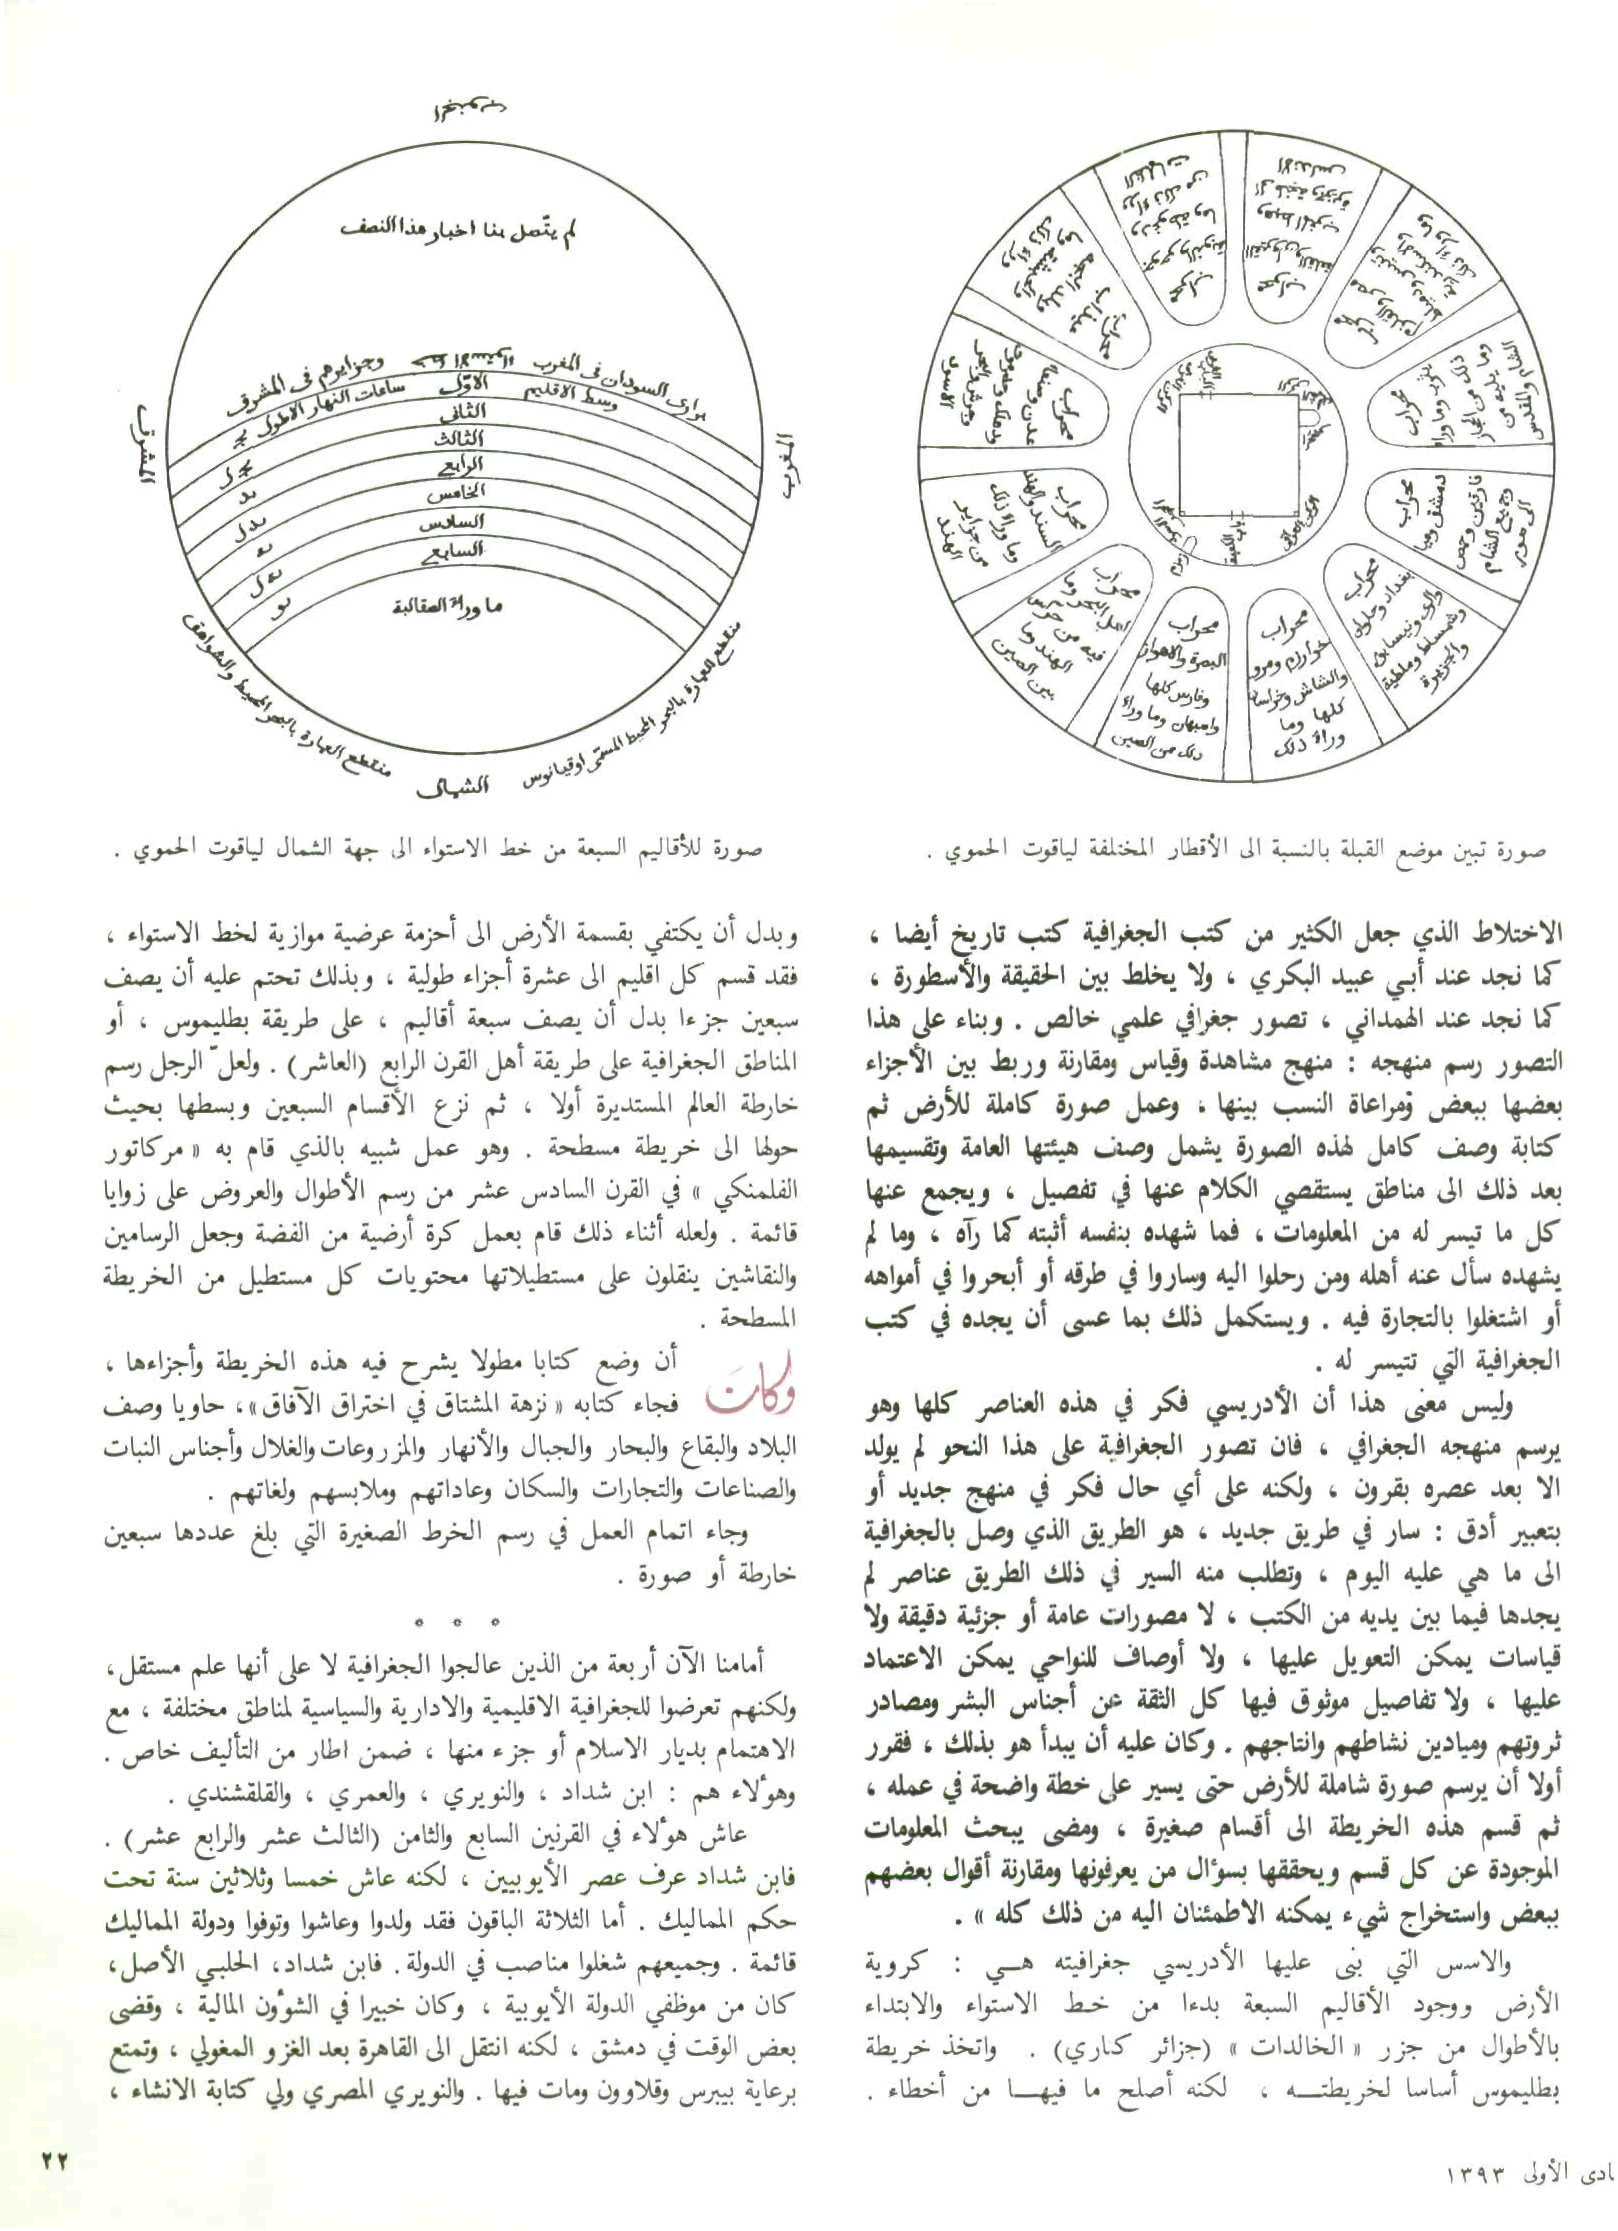 صورة تبين موضع القبلة بالنسبة الى الأقطار المختلفة لياقوت الحموي .
الاختلاط الذي جعل الكثير من كتب الجغرافية كتب تاريخ أيضا ،
كما نجد عند أبي عبيد البكري ، ولا يخلط بين الحقيقة والأسطورة ،
كما نجد عند الهمداني ، تصور جغرافي علمي خالص . وبناء على هذا
التصور رسم منهجه : منهج مشاهدة وقياس ومقارنة وربط بين الأجزاء
بعضها ببعض ومراعاة النسب بينها ، وعمل صورة كاملة للأرض ثم
كتابة وصف كامل لهذه الصورة يشمل وصف هيئتها العامة وتقسيمها
بعد ذلك الى مناطق يستقصي الكلام عنها في تفصيل ، ويجمع عنها
كل ما تيسر له من المعلومات ، فما شهده بنفسه أثبته كما رآه ، وما لم
يشهده سأل عنه أهله ومن رحلوا اليه وساروا في طرقه أو أبحروا في أمواهه
أو اشتغلوا بالتجارة فيه . ويستكمل ذلك بما عسى أن يجده في كتب
الجغرافية التي تتيسر له .
وليس معنى هذا أن الأدريسي فكر في هذه العناصر كلها وهو
يرسم منهجه الجغرافي ، فان تصور الجغرافية على هذا النحو لم يولد
الا بعد عصره بقرون ، ولكنه على أي حال فكر في منهج جديد أو
بتعبير أدق : سار في طريق جديد ، هو الطريق الذي وصل بالجغرافية
الى ما هي عليه اليوم ، وتطلب منه السير في ذلك الطريق عناصر لم
يجدها فيما بين يديه من الكتب ، لا مصورات عامة أو جزئية دقيقة ولا
قياسات يمكن التعويل عليها ، ولا أوصاف للنواحي يمكن الاعتماد
عليها ، ولا تفاصيل موثوق فيها كل الثقة عن أجناس البشر ومصادر
ثروتهم وميادين نشاطهم وانتاجهم . وكان عليه أن يبدأ هو بذلك ، فقرر
أولا أن يرسم صورة شاملة للأرض حتى يسير على خطة واضحة في عمله ،
ثم قسم هذه الخريطة الى أقسام صغيرة ، ومضى يبحث المعلومات
الموجودة عن كل قسم ويحققها بسؤال من يعرفونها ومقارنة أقوال بعضهم
ببعض واستخراج شيء يمكنه الاطمئنان اليه من ذلك كله » .
والاسس التي بنى عليها الأدريسي جغرافيته هي : كروية
الأرض ووجود الأقاليم السبعة بدءا من خط الاستواء والابتداء
بالأطوال من جزر « الخالدات » (جزائر كناري) . واتخذ خريطة
بطليموس أساسا لخريطته ، لكنه أصلح ما فيها من أخطاء .
الجنوب
لم يتّصل بنا اخبار هذا النصف
برارى السودان فى المغرب خط الاستواء وجزايرهم فى المشرق
وسط الاقليم الاوّل ساعات النهار الاطول
الثانى
الثالث
الرابع
الخامس
السادس
السابع
ما وراء الصقالبة
المغرب
المشرق
منقطع العمارة بالبحر المحيط المسمّى اوقيانوس
الشمال
منقطع العمارة بالبحر المحيط والشواهق
صورة للأقاليم السبعة من خط الاستواء الى جهة الشمال لياقوت الحموي .
وبدل أن يكتفي بقسمة الأرض الى أحزمة عرضية موازية لخط الاستواء ،
فقد قسم كل اقليم الى عشرة أجزاء طولية ، وبذلك تحتم عليه أن يصف
سبعين جزءا بدل أن يصف سبعة أقاليم ، على طريقة بطليموس ، أو
المناطق الجغرافية على طريقة أهل القرن الرابع (العاشر) . ولعلّ الرجل رسم
خارطة العالم المستديرة أولا ، ثم نزع الأقسام السبعين وبسطها بحيث
حولها الى خريطة مسطحة . وهو عمل شبيه بالذي قام به « مركاتور
الفلمنكي » في القرن السادس عشر من رسم الأطوال والعروض على زوايا
قائمة . ولعله أثناء ذلك قام بعمل كرة أرضية من الفضة وجعل الرسامين
والنقاشين ينقلون على مستطيلاتها محتويات كل مستطيل من الخريطة
المسطحة .
وكان أن وضع كتابا مطولا يشرح فيه هذه الخريطة وأجزاءها ،
فجاء كتابه « نزهة المشتاق في اختراق الآفاق »، حاويا وصف
البلاد والبقاع والبحار والجبال والأنهار والمزروعات والغلال وأجناس النبات
والصناعات والتجارات والسكان وعاداتهم وملابسهم ولغاتهم .
وجاء اتمام العمل في رسم الخرط الصغيرة التي بلغ عددها سبعين
خارطة أو صورة .
* * *
أمامنا الآن أربعة من الذين عالجوا الجغرافية لا على أنها علم مستقل،
ولكنهم تعرضوا للجغرافية الاقليمية والادارية والسياسية لمناطق مختلفة ، مع
الاهتمام بديار الاسلام أو جزء منها ، ضمن اطار من التأليف خاص .
وهؤلاء هم : ابن شداد ، والنويري ، والعمري ، والقلقشندي .
عاش هؤلاء في القرنين السابع والثامن (الثالث عشر والرابع عشر) .
فابن شداد عرف عصر الأيوبيين ، لكنه عاش خمسا وثلاثين سنة تحت
حكم المماليك . أما الثلاثة الباقون فقد ولدوا وعاشوا وتوفوا ودولة المماليك
قائمة . وجميعهم شغلوا مناصب في الدولة . فابن شداد، الحلبي الأصل،
كان من موظفي الدولة الأيوبية ، وكان خبيرا في الشؤون المالية ، وقضى
بعض الوقت في دمشق ، لكنه انتقل الى القاهرة بعد الغزو المغولي ، وتمتع
برعاية بيبرس وقلاوون ومات فيها . والنويري المصري ولي كتابة الانشاء ،
ادى الأولى ١٣٩٣
٢٢